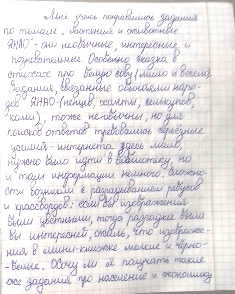 Мне очень понравились задания
по темам "растения и животные
ЯНАО" - они необычные, интересные и
познавательные. Особенно сказка в
стихах про белую сову (мило и весело).
Задания, связанные обычаями наро-
дов ЯНАО (ненцев, ханты, селькупов,
коми), тоже необычны, но для
поисков ответов требовались серьёзные
усилия - интернета здесь мало,
нужно было идти в библиотеку, но
и там информации немного. Сложно-
сти возникли с разгадыванием ребусов
и кроссвордов: если бы изображения
были цветными, тогда разгадка была
бы интересней, жаль, что изображе-
ния в мини-книжке мелкие и чёрно-
белые. Хочу ли я получать такие
же задания про население и экономику